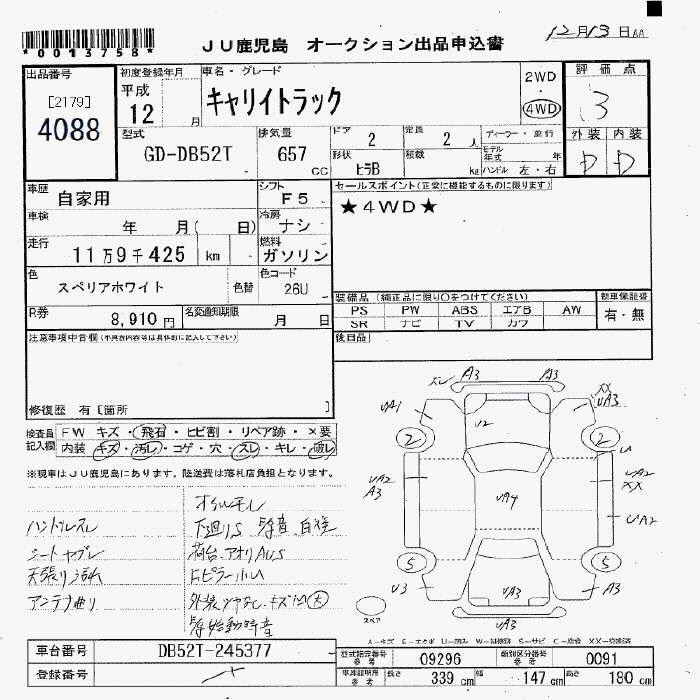 *0013758*
JU鹿児島 オークション出品申込書
12月13日
出品番号
[2179]
4088
初度登録年月
平成
12 月
車名・グレード
キャリイトラック
2WD
・
4WD
評価点
3
外装 内装
D D
型式
GD-DB52T
排気量
657
CC
ドア
2
定員
2 人
形状
ヒラB
積載
kg
ディーラー・並行
モデル年式 年
ハンドル 左・右
車歴
自家用
シフト
F5
セールスポイント(正常に機能するものに限ります)
★4WD★
車検
年 月( 日)
冷房
ナシ
走行
11万9千425 km
燃料
ガソリン
色
スペリアホワイト
色替
色コード
26U
R券
8,910円
名変通知期限
月 日
装備品 (純正品に限り○をつけてください)
PS PW ABS エアB AW
SR ナビ TV カワ
新車保証書
有・無
後日品
注意事項申告欄(不具合内容等は具体的に記入して下さい)
修復歴 有〔箇所 〕
検査員記入欄
FW キズ・飛石・ヒビ割・リペア跡・×要
内装 キズ・汚レ・コゲ・穴・スレ・キレ・破レ
※現車はJU鹿児島にあります。陸送費は落札店負担となります。
オイルモレ
ハンドルスレ
下廻りS
シートヤブレ
荷台、アオリAUS
天張り汚れ
アンテナ曲り
A3 A3
UA1
XX
UA3
U2
2 2
UA2
A3
UA4
UA2
XX
UA2
5 5
U3
UA3
A3
UA3
スペア
A-キズ E-エクボ U-凹み W-補修跡 S-サビ C-腐食 XX-交換済
車台番号
DB52T-245377
登録番号
型式指定番号
参考
09296
類別区分番号
参考
0091
車庫証明用
参考
長さ
339 cm
幅
147 cm
高さ
180 cm